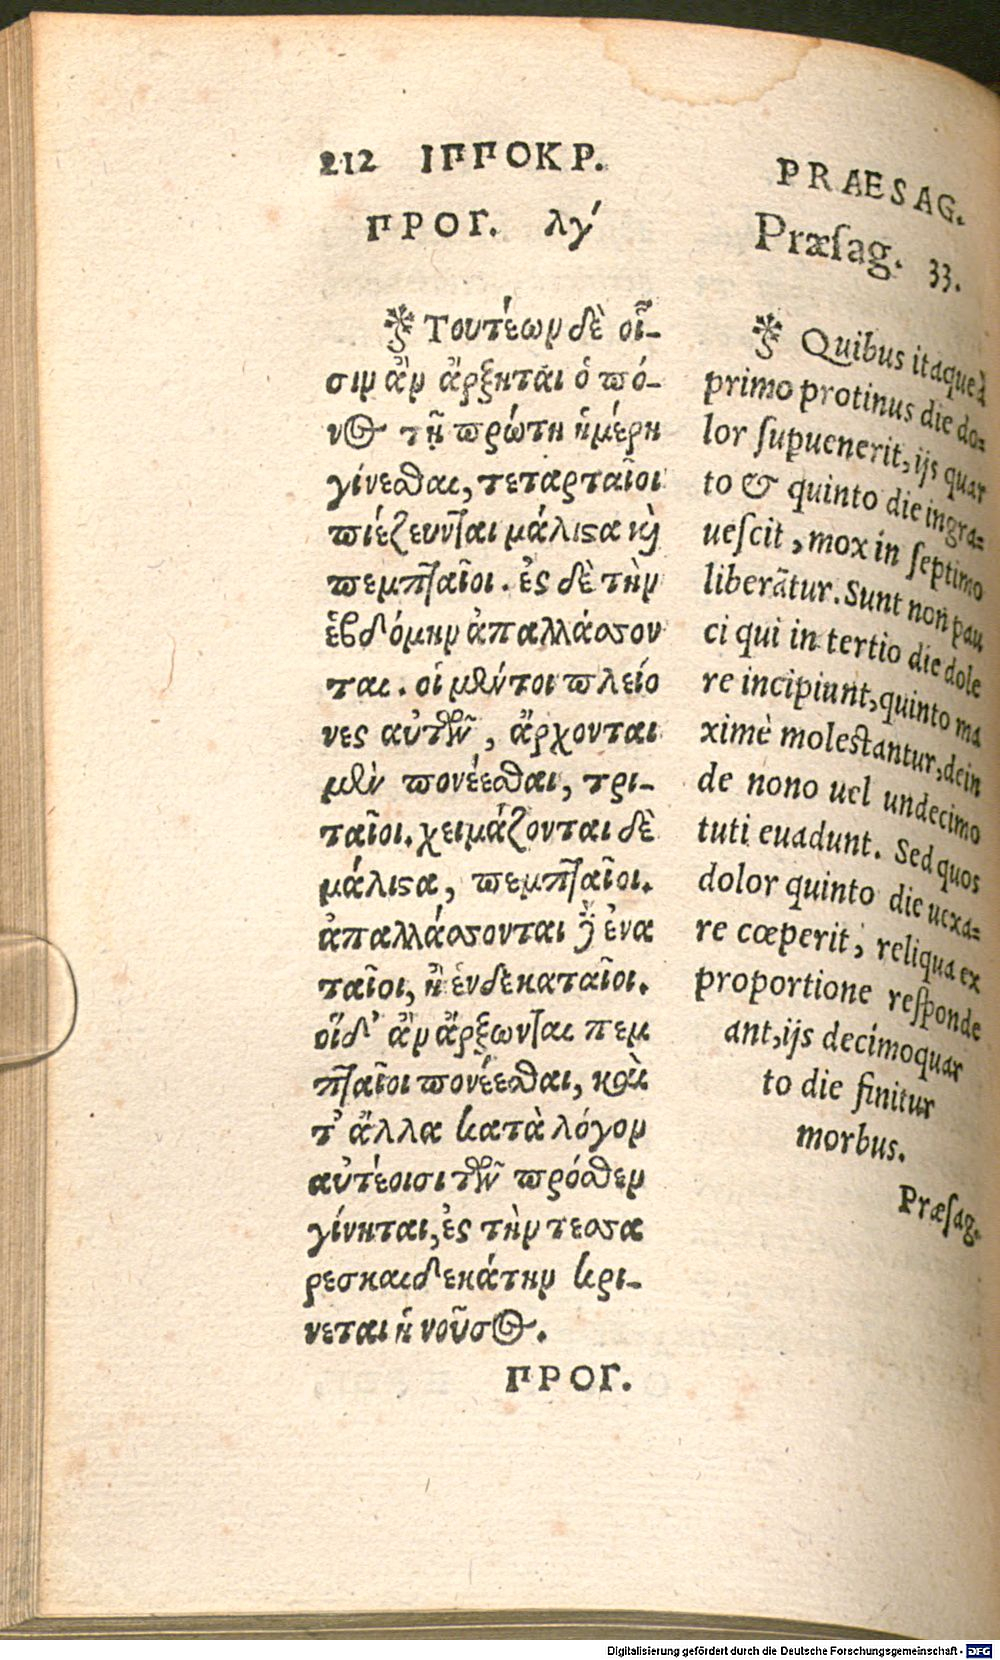 212 ΙΠΠΟΚΡ.
ΠΡΟΓ. λγ´
Τουτέων δὲ οἷ-
σιν ἂν ἄρξηται ὁ πό-
νος τῇ πρώτη ἡμέρη
γίνεσθαι, τεταρταῖοι
πιέζευνται μάλιστα καὶ
πεμπταῖοι. ἐς δὲ τὴν
ἑβδόμην ἀπαλλάσσον
ται. οἱ μέντοι πλείο
νες αὐτῶν, ἄρχονται
μὲν πονέεσθαι, τρι-
ταῖοι. χειμάζονται δὲ
μάλιστα, πεμπταῖοι.
ἀπαλλάσσονται δὲ ἐνα
ταῖοι, ἢ ἑνδεκαταῖοι.
οἵ δ᾽ ἂν ἄρξωνται πεμ
πταῖοι πονέεσθαι, καὶ
τ᾽ ἄλλα κατὰ λόγον
αὐτέοισι τῶν πρόσθεν
γίνηται, ἐς τὴν τεσσα
ρεσκαιδεκάτην κρί-
νεται ἡ νοῦσος.
ΠΡΟΓ.
PRAESAG.
Præsag. 33.
Quibus itaque à
primo protinus die do-
lor superuenerit, ijs quar
to & quinto die ingra-
uescit, mox in septimo
liberãtur. Sunt non pau
ci qui in tertio die dole
re incipiunt, quinto ma
ximè molestantur, dein
de nono uel undecimo
tuti euadunt. Sed quos
dolor quinto die uexa-
re cœperit, reliqua ex
proportione responde
ant, ijs decimoquar
to die finitur
morbus.
Præsag.
Digitalisierung gefördert durch die Deutsche Forschungsgemeinschaft - DFG